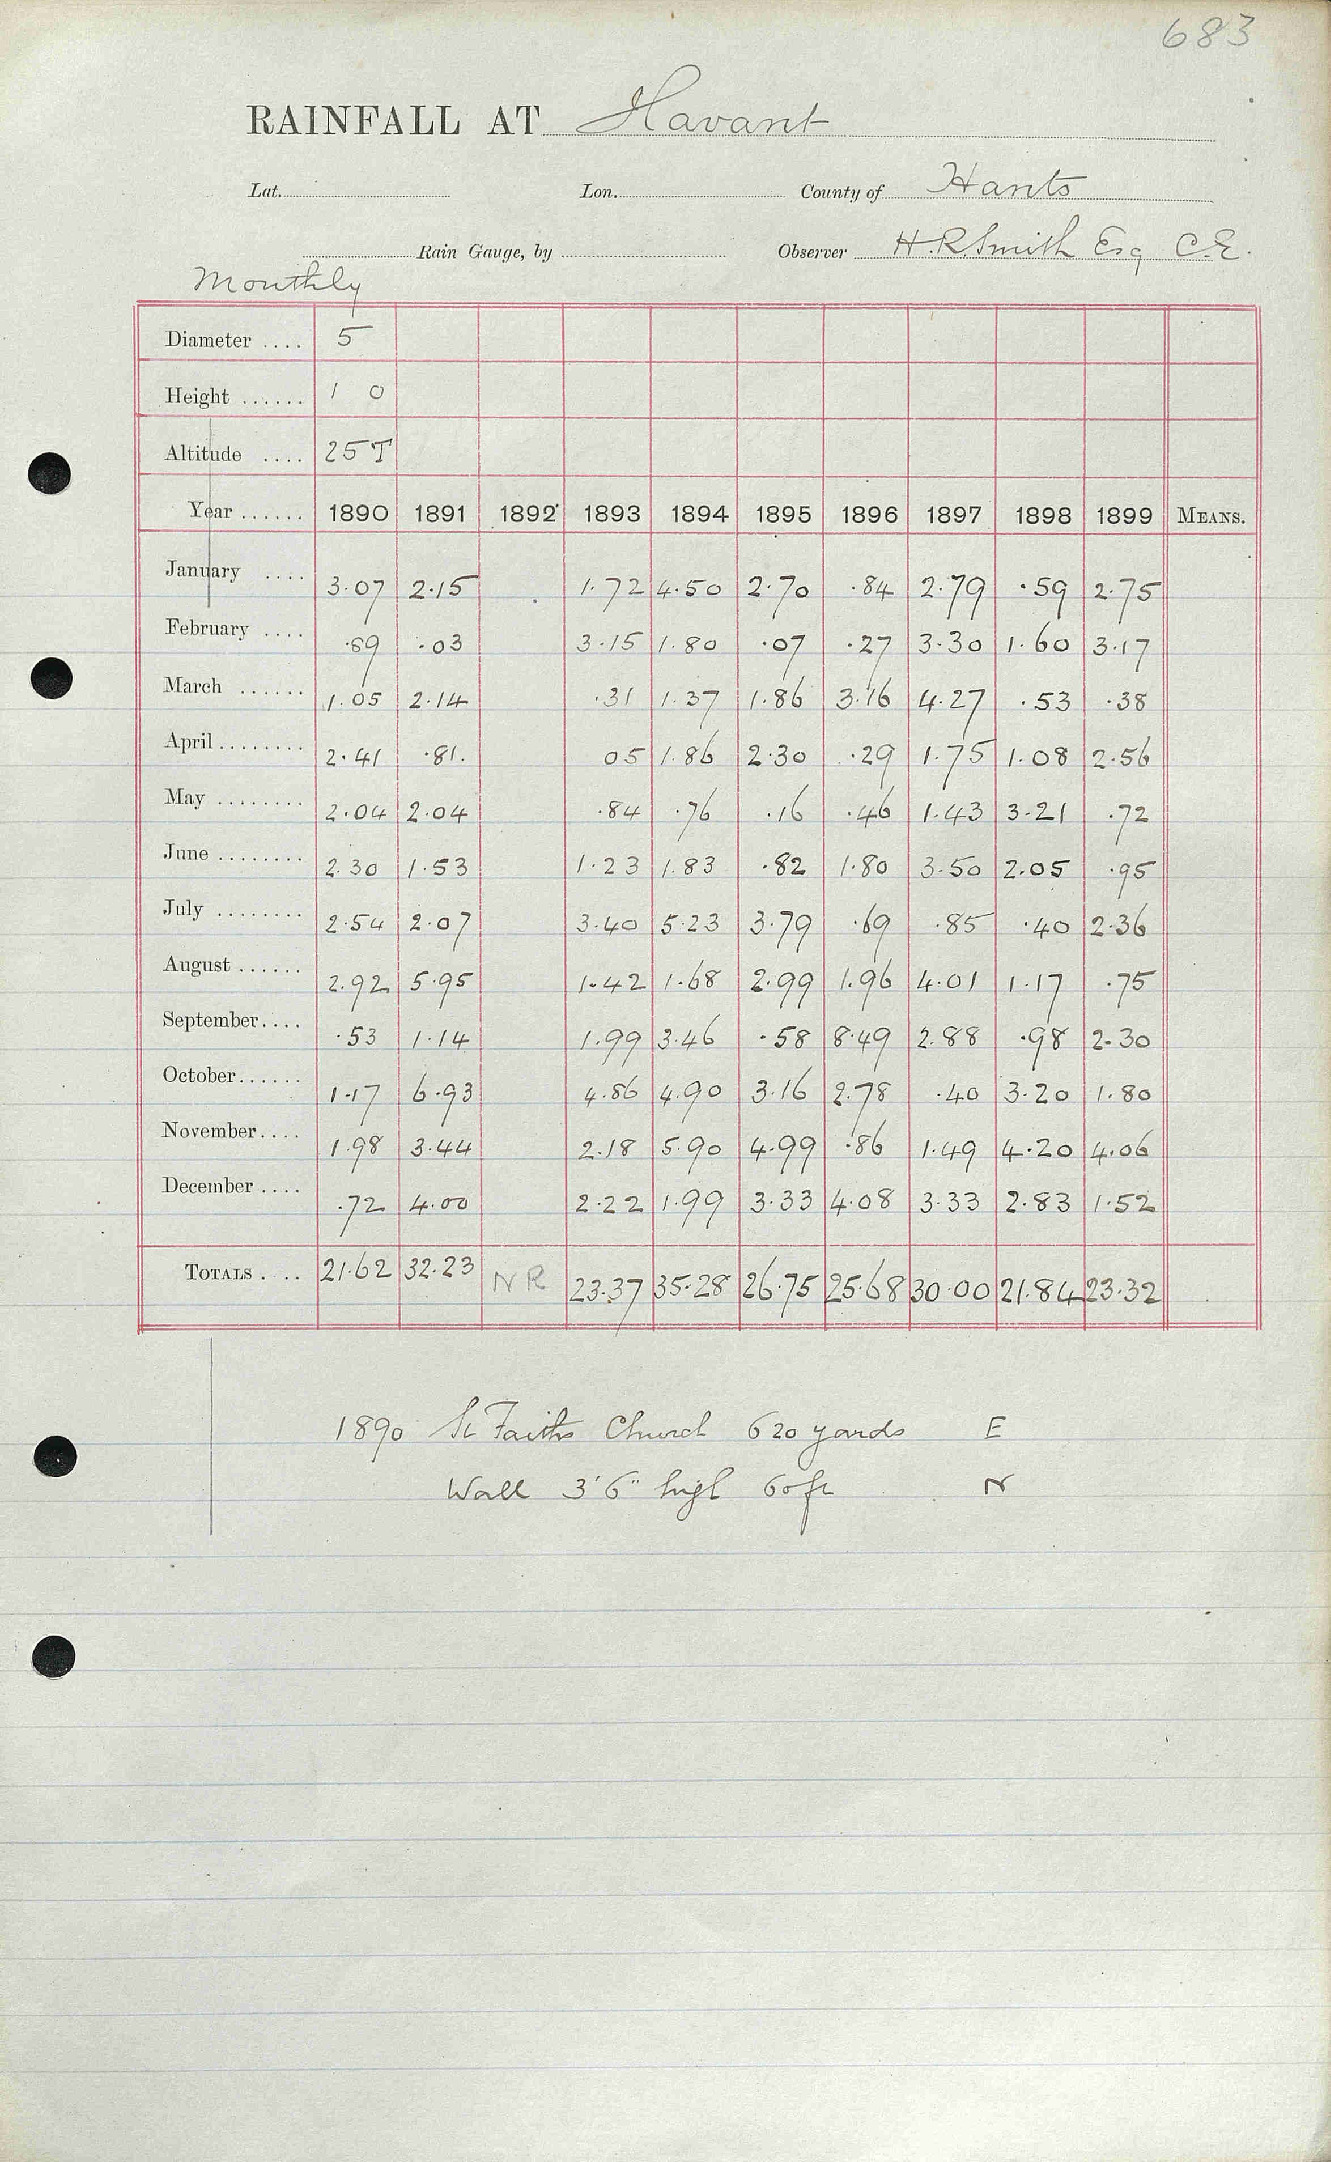 683
RAINFALL AT Havant
Lat. Lon. County of Hants
Rain Gauge, by Observer H. R. Smith Esq C.E.
Monthly
Diameter .... 5
Height ...... 1 0
Altitude .... 25 T
Year ...... 1890 1891 1892 1893 1894 1895 1896 1897 1898 1899 MEANS.
January .... 3.07 2.15 1.72 4.50 2.70 .84 2.79 .59 2.75
February .... .89 .03 3.15 1.80 .07 .27 3.30 1.60 3.17
March ...... 1.05 2.14 .31 1.37 1.86 3.16 4.27 .53 .38
April ........ 2.41 .81. 05 1.86 2.30 .29 1.75 1.08 2.56
May ........ 2.04 2.04 .84 .76 .16 .46 1.43 3.21 .72
June ........ 2.30 1.53 1.23 1.83 .82 1.80 3.50 2.05 .95
July ........ 2.54 2.07 3.40 5.23 3.79 .69 .85 .40 2.36
August ...... 2.92 5.95 1.42 1.68 2.99 1.96 4.01 1.17 .75
September.... .53 1.14 1.99 3.46 .58 8.49 2.88 .98 2.30
October...... 1.17 6.93 4.86 4.90 3.16 2.78 .40 3.20 1.80
November.... 1.98 3.44 2.18 5.90 4.99 .86 1.49 4.20 4.06
December .... .72 4.00 2.22 1.99 3.33 4.08 3.33 2.83 1.52
TOTALS .... 21.62 32.23 NR 23.37 35.28 26.75 25.68 30.00 21.84 23.32
1890 St Faiths Church 620 yards E
Wall 3'6" high 60 ft N